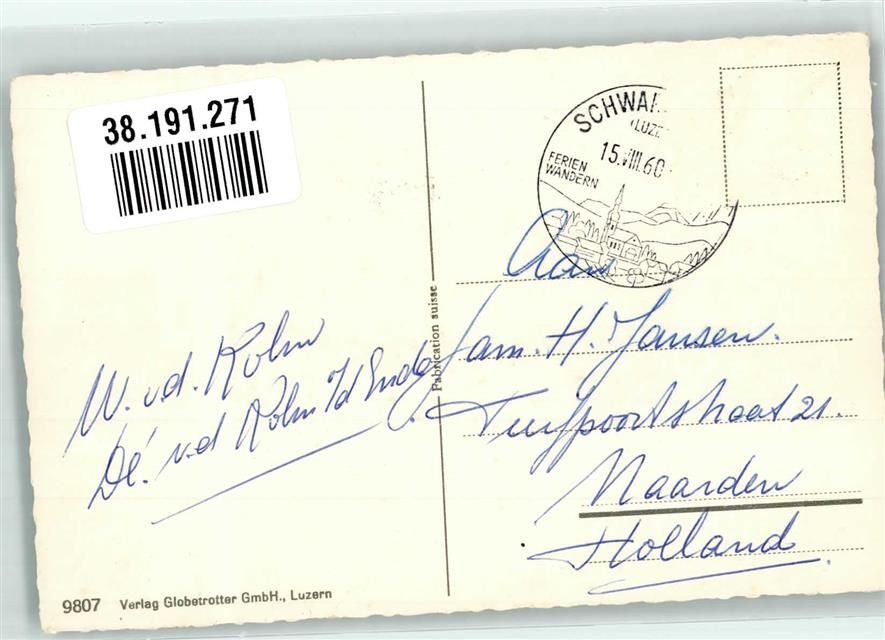 38.191.271
SCHWAR
(LUZE
15.VIII.60
FERIEN
WANDERN
Aan
Fam. H. Jansen.
Turfpoortstraat 21.
Naarden
Holland
Fabrication suisse
W. v.d. Kolm
Dé. v.d Kolm v/d Ende
9807 Verlag Globetrotter GmbH., Luzern